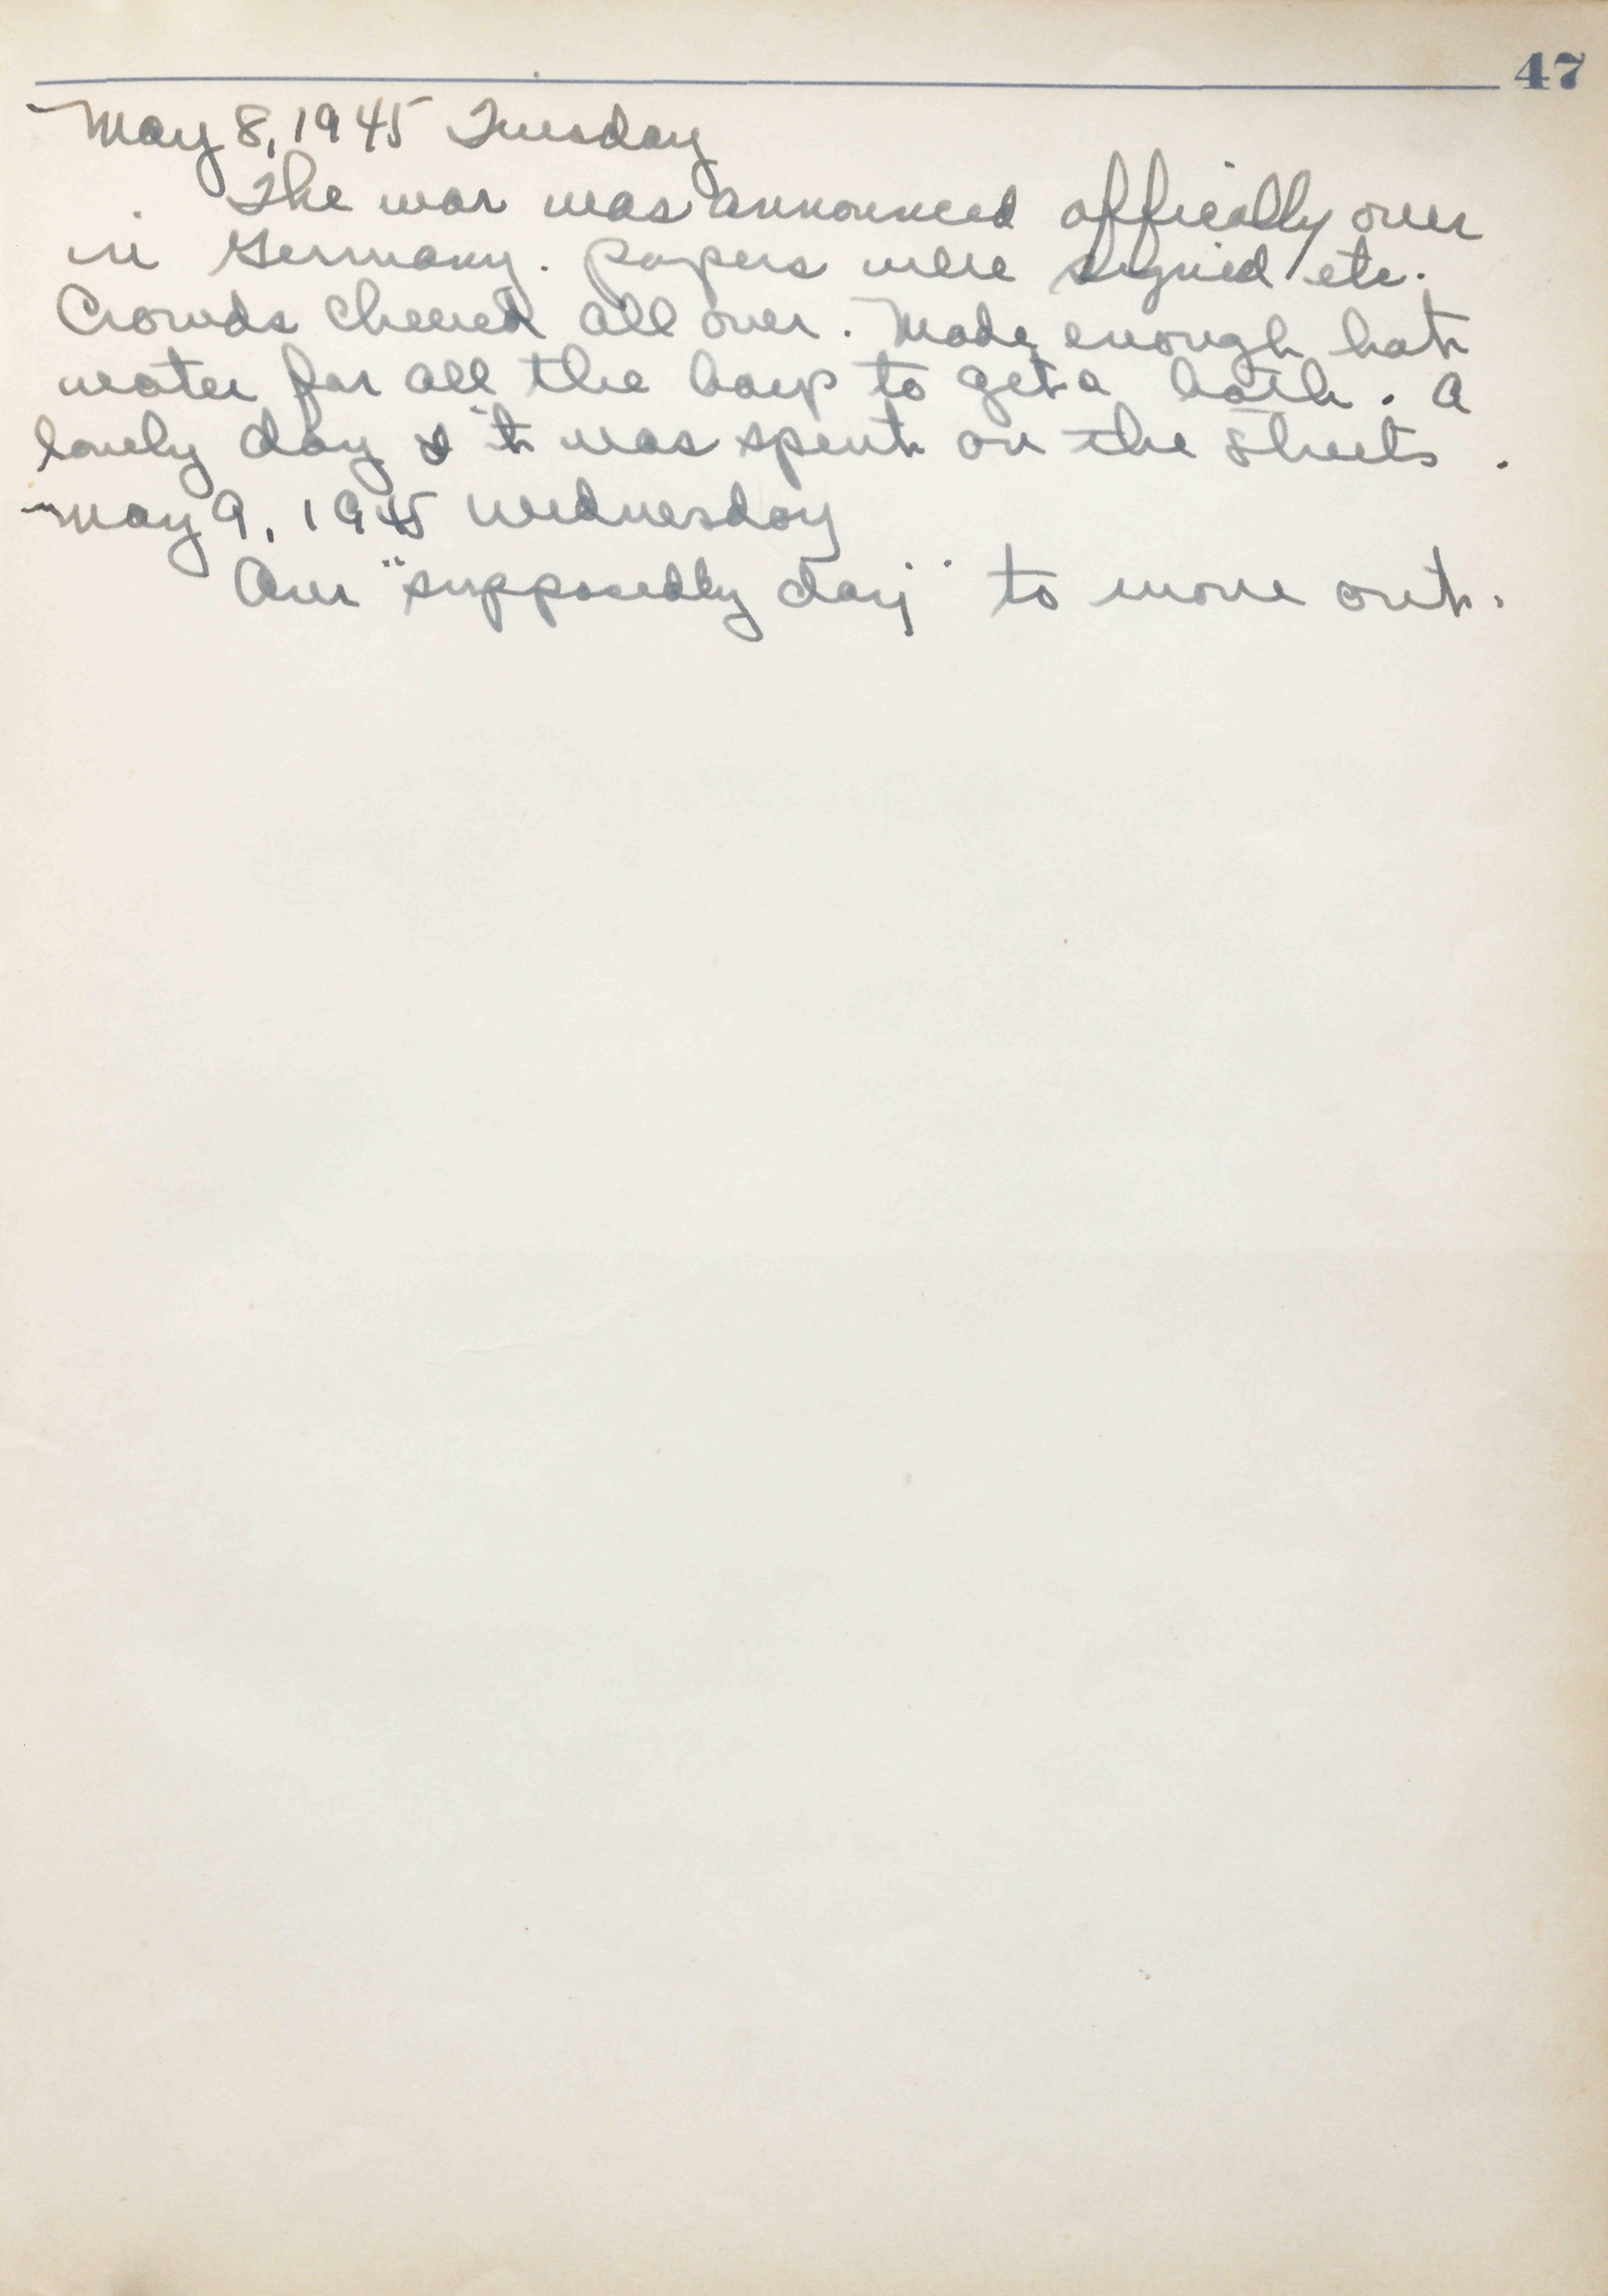 47
May 8, 1945 Tuesday
The war was announced offically over
in Germany. Papers were signed etc.
Crowds cheered all over. Made enough hot
water for all the boys to get a bath. A
lovely day & it was spent on the streets.
May 9, 1945 Wednesday
Our "supposedly day" to move out.